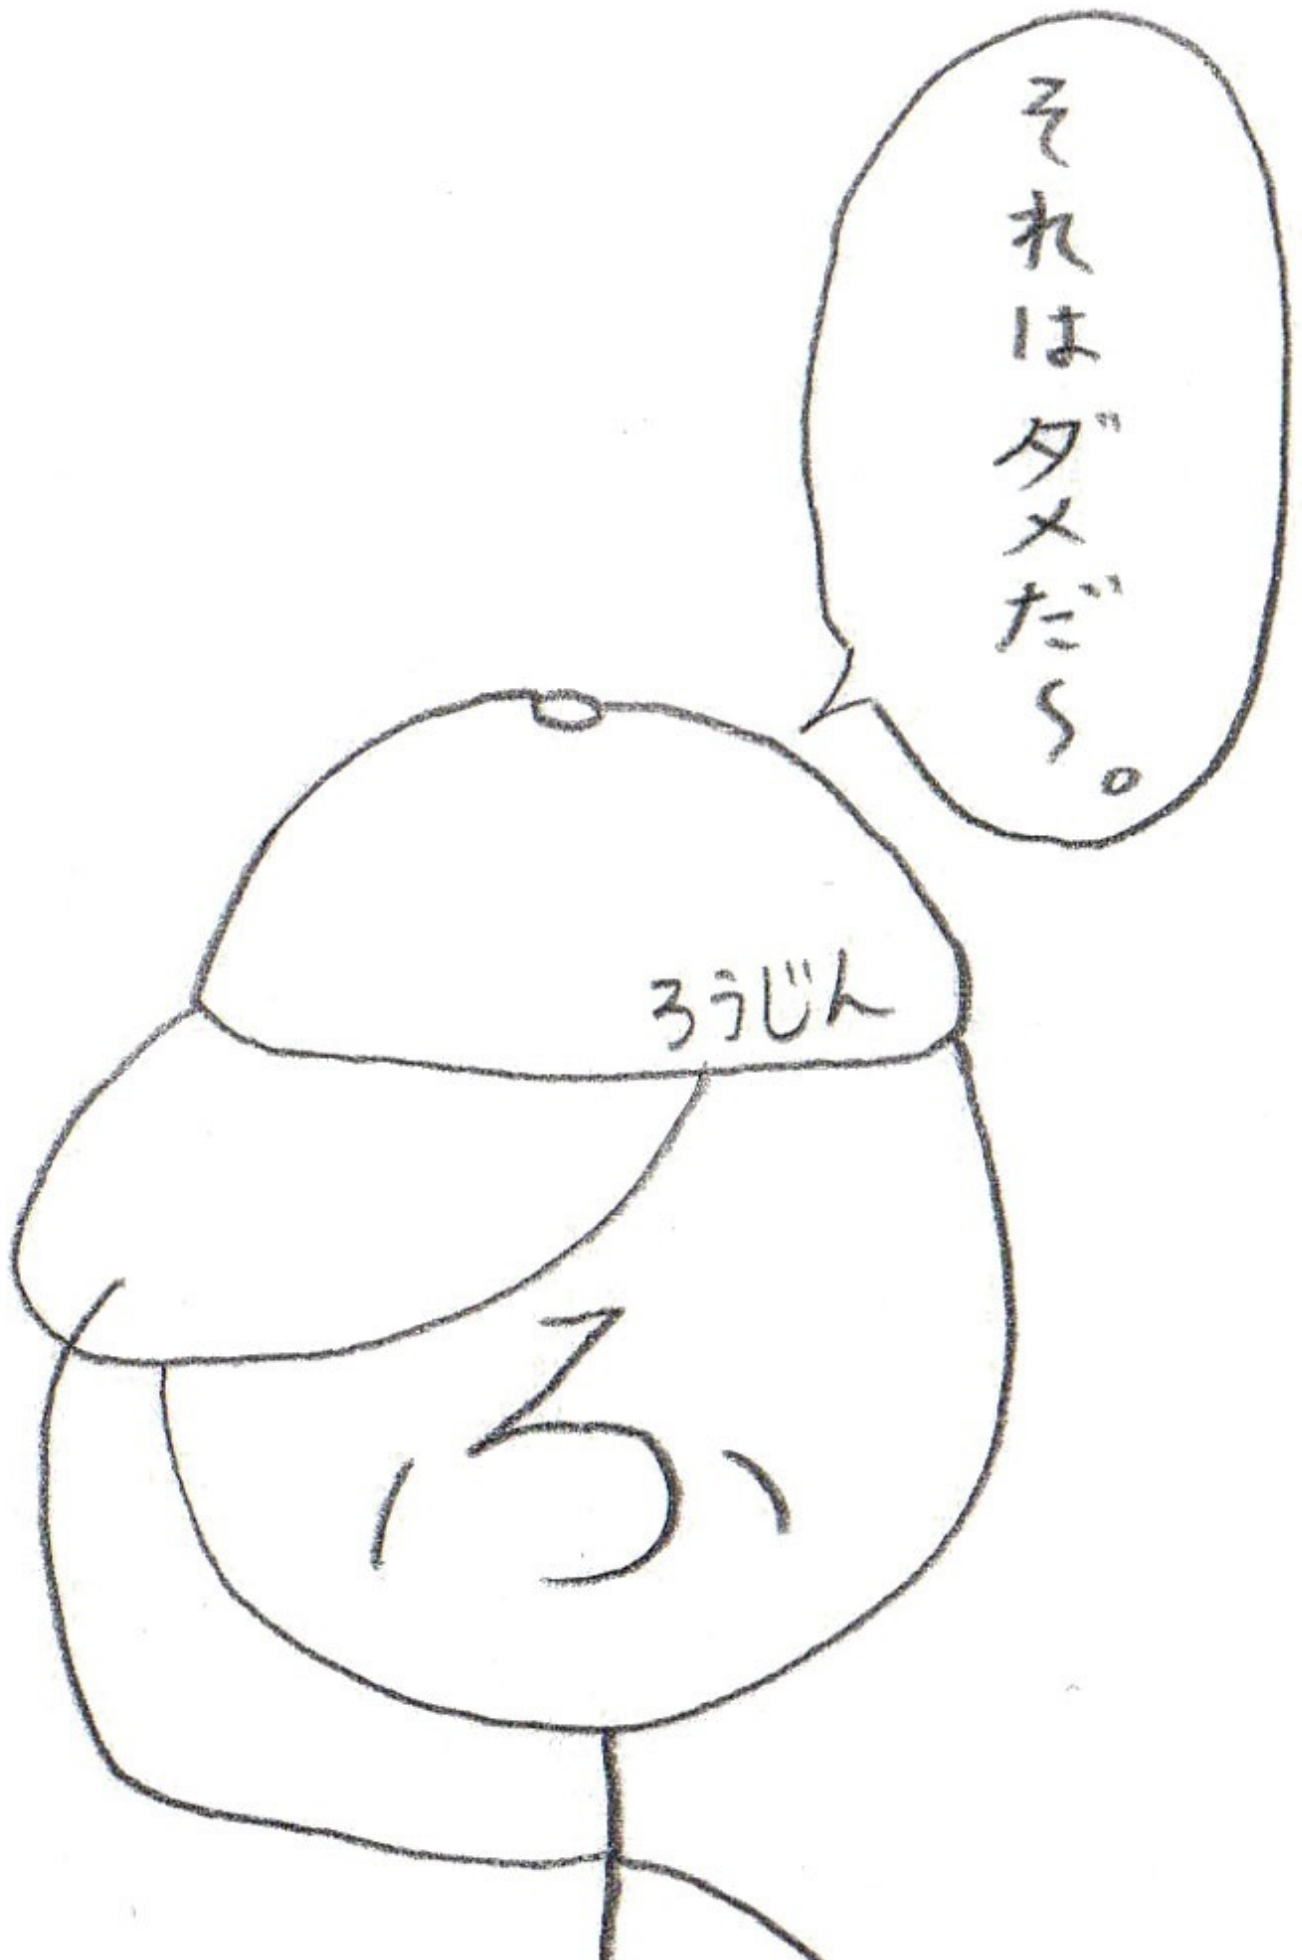 それはダメだ〜。
ろうじん
ろ